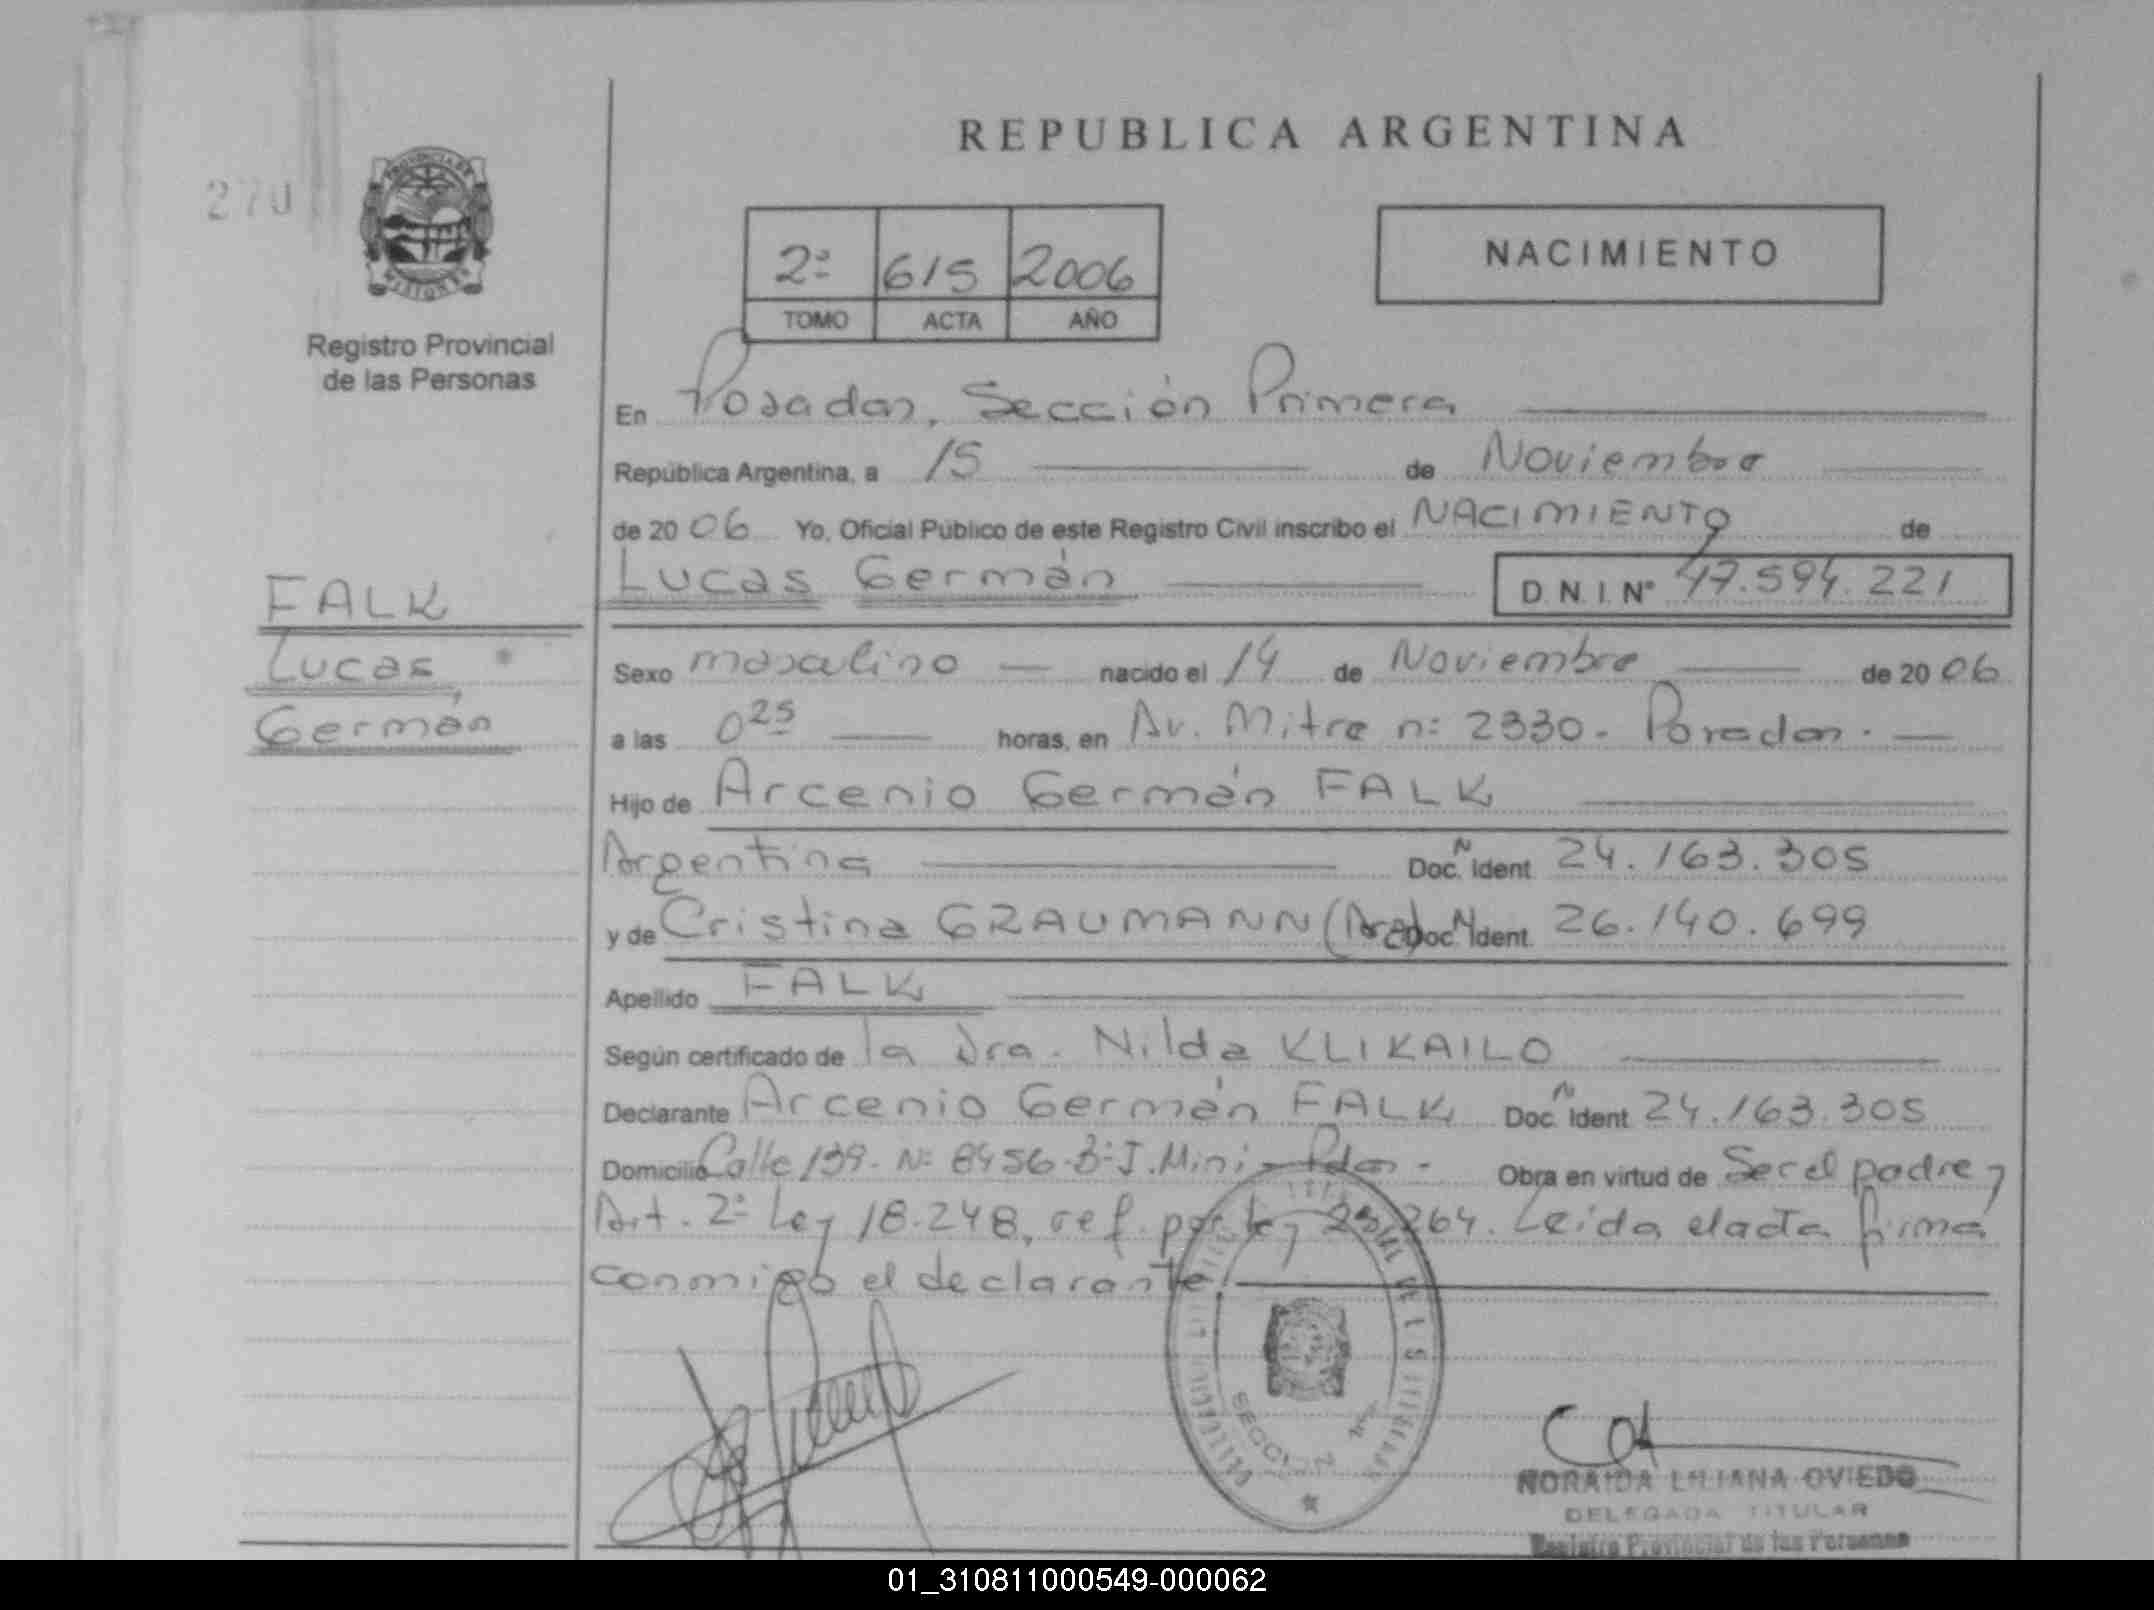 REPUBLICA ARGENTINA
270
PROVINCIA DE
MISIONES
Registro Provincial
de las Personas
2º 615 2006
TOMO ACTA AÑO
NACIMIENTO
En Posadas, Sección Primera
República Argentina, a 15 de Noviembre
de 20 06 Yo, Oficial Público de este Registro Civil inscribo el NACIMIENTO de
Lucas Germán D.N.I. Nº 47.594.221
FALK
Lucas
Germán
Sexo masculino nacido el 14 de Noviembre de 20 06
a las 0 25 horas, en Av. Mitre nº 2330. Posadas.
Hijo de Arcenio Germán FALK
Argentina Doc. N Ident. 24.163.305
y de Cristina GRAUMANN (Arg) Doc. N Ident. 26.140.699
Apellido FALK
Según certificado de la Dra. Nilda KLIKAILO
Declarante Arcenio Germán FALK Doc. N Ident 24.163.305
Domicilio Calle 139. Nº 8456-Bº J. Mini - Pdas - Obra en virtud de Ser el padre y
Art. 2º Ley 18.248, ref. por ley 23.264. Leída el acta firma
conmigo el declarante.
SECCION
NORAIDA LILIANA OVIEDO
DELEGADA TITULAR
Registro Provincial de las Personas
01_310811000549-000062